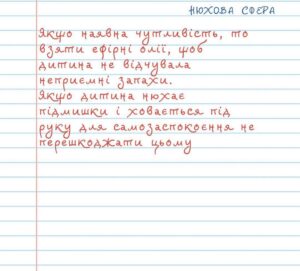 НЮХОВА СФЕРА
Якщо наявна чутливість, то
взяти ефірні олії, щоб
дитина не відчувала
неприємні запахи.
Якщо дитина нюхає
підмишки і ховається під
руку для самозаспокоєння не
перешкоджати цьому